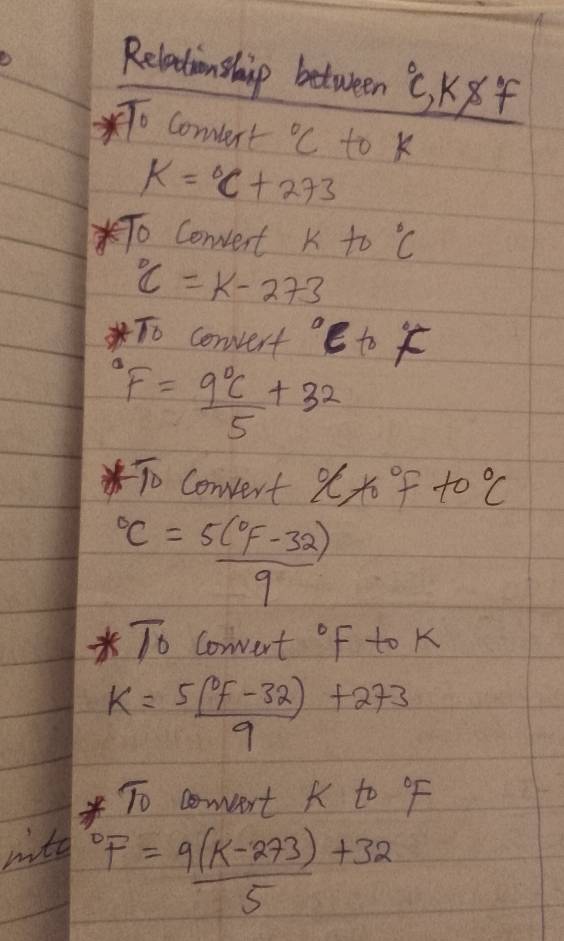 Relationship between °C, K & °F
*To convert °C to K
K = °C + 273
*To convert K to °C
°C = K - 273
*To convert °C to °F
°F = 9°C/5 + 32
*To convert °F to °C
°C = 5(°F - 32)/9
*To convert °F to K
K = 5(°F - 32)/9 + 273
*To convert K to °F
into
°F = 9(K - 273)/5 + 32